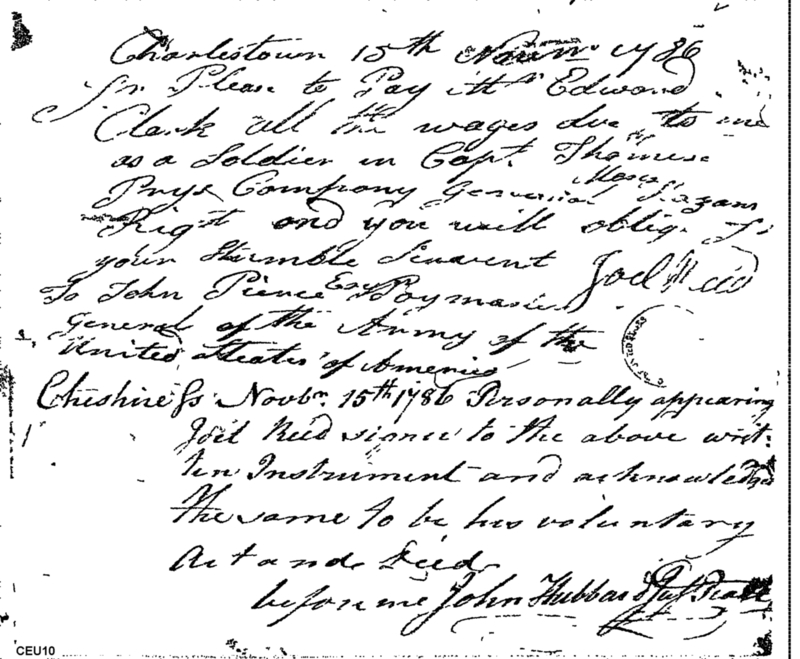 Charlestown 15th Novmr 1786
Sr. Please to Pay Mr Edward
Clark all the wages due to me
as a Soldier in Capt. Thomas
Prys Company General Moses Hazans
Rigt and you will oblige Sr
your Humble Servant Joel Reed
To John Pierce Esqr Paymaster
General of the Army of the
United States of America
Cheshire ss Novbr. 15th 1786 Personally appearing
Joel Reed signer to the above writ
ten Instrument and acknowledged
the same to be his voluntary
Act and Deed
before me John Hubbard Just Peace
CEU10